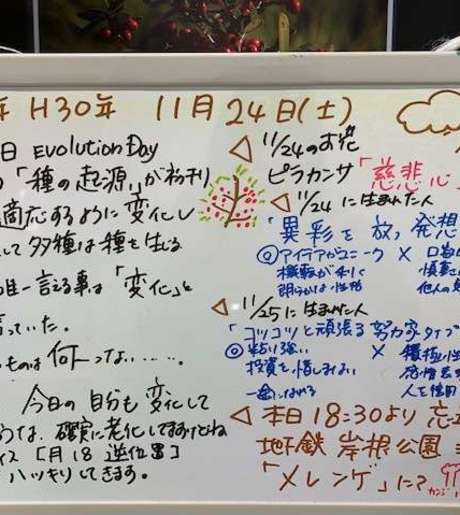 年 H30年 11月24日(土)
日 Evolution Day
の「種の起源」が初刊
適応するように変化し
して多種は種を生じる
唯一言える事は「変化」と
言っていた。
ものは何一つない……。
今日の自分も変化して
うな、確実に老化してますけどね
イス [月18 逆位置]
ハッキリしてきます。
◁ 11/24のお花
ピラカンサ「慈悲心
◁ 11/24に生まれた人
「異彩を放つ発想
◎アイデアがユニーク ×
機転が利く
朗らかな性格
◁ 11/25に生まれた人
「コツコツと頑張る努力家タイプ
◎粘り強い × 積極性
投資を惜しまない 感情
一途になれる 人を信用
◁ 本日18:30より 忘
地下鉄 岸根公園
「メレンゲ」にて